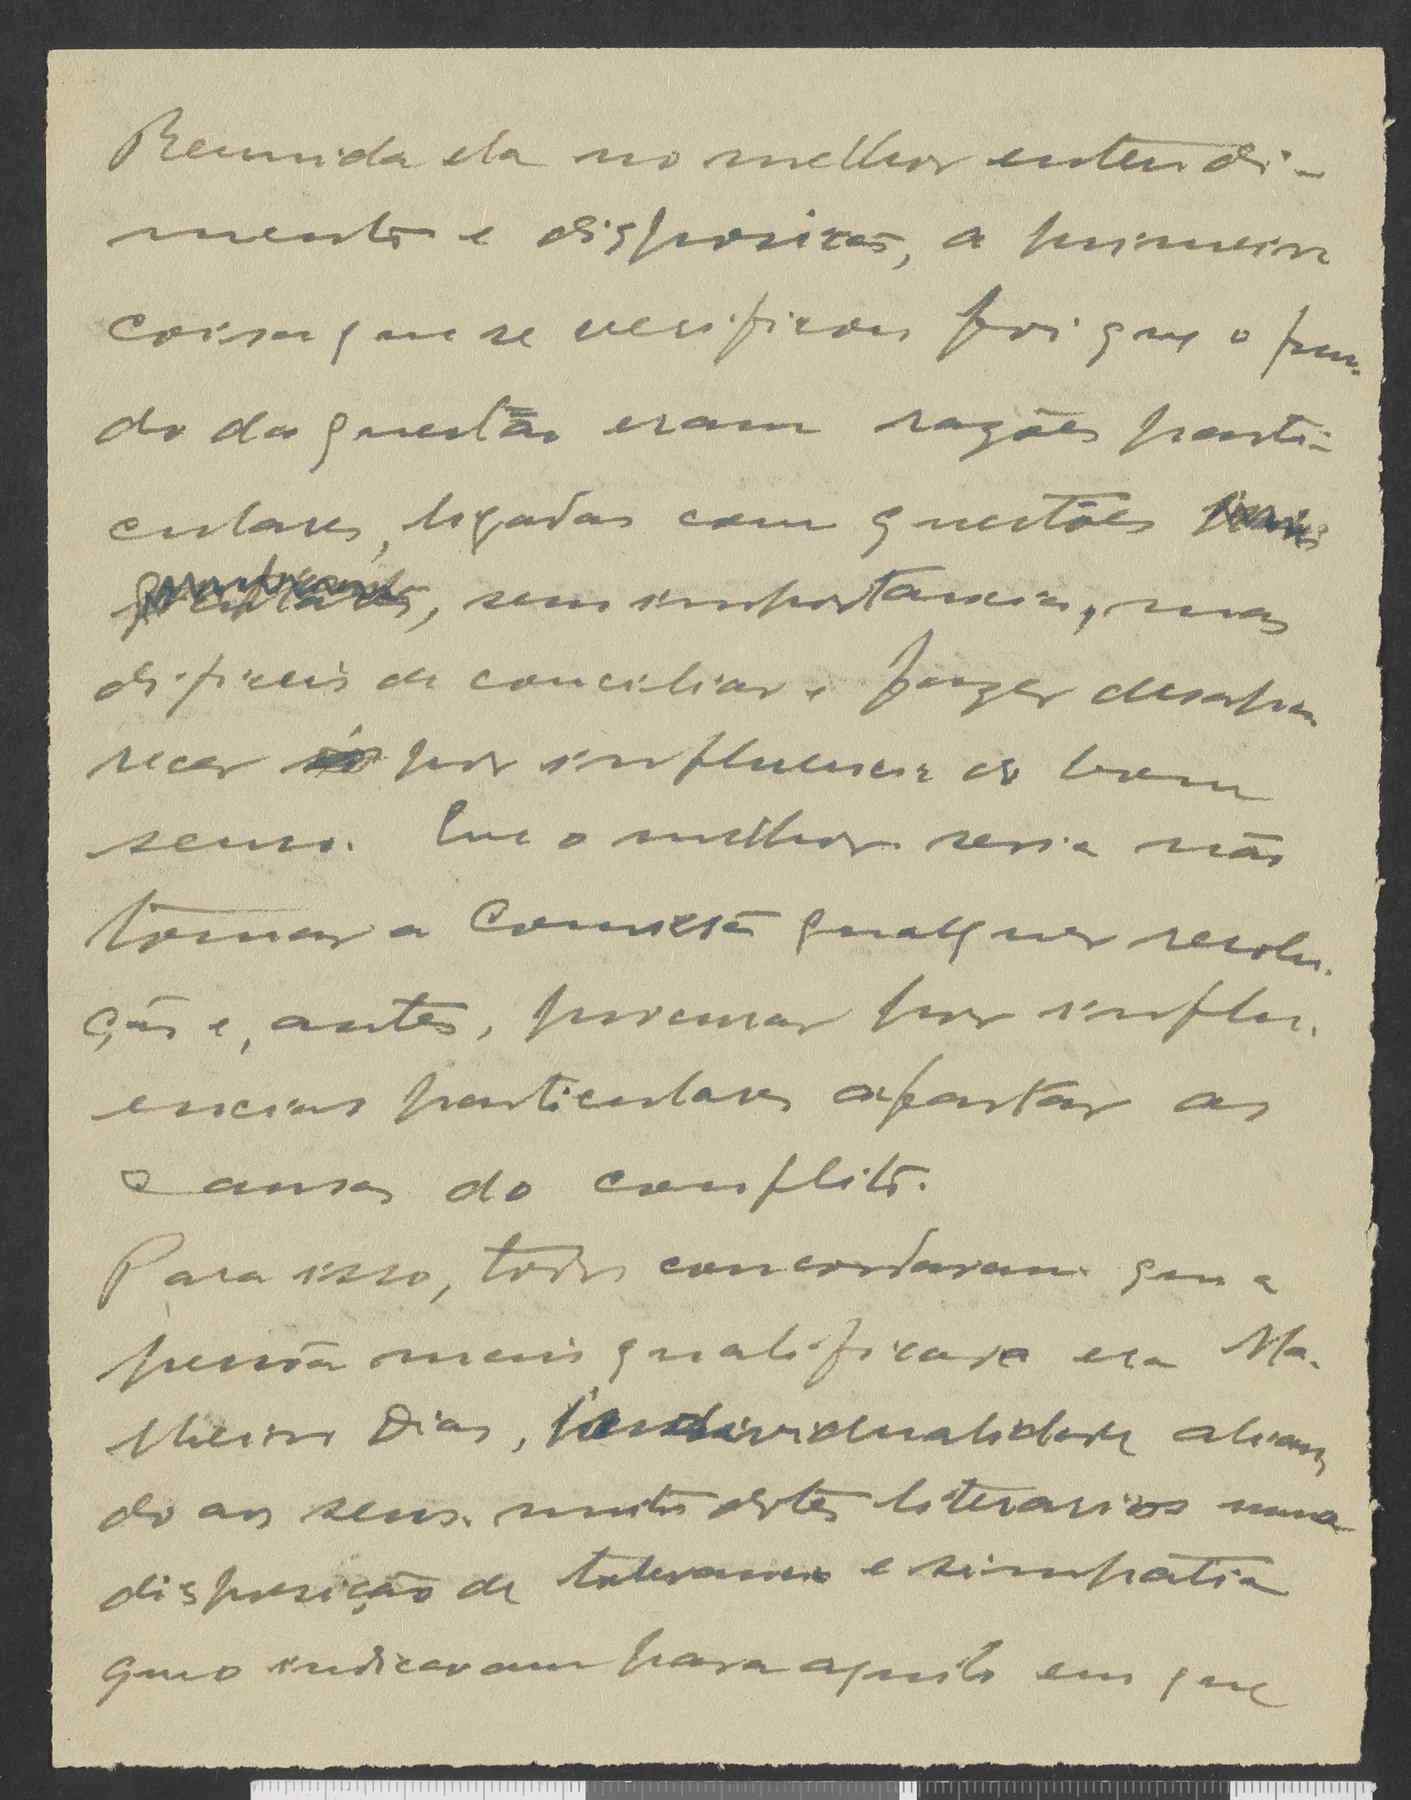 Reunida ela no melhor entendi-
mento e disposição, a primeira
coisa que se verificou foi que o fun-
do da questão eram razões parti-
culares, ligadas com questões
sem importancia, mas
dificeis de conciliar e fazer desapa-
recer só por influencia do bom
senso. Que o melhor seria não
tomar a Comissão qualquer resolu-
ção e, antes, procurar por influ-
encias particulares afastar as
causas do conflito.
Para isso, todos concordaram que a
pessôa mais qualificada era Ma-
lheiro Dias, individualidade alian-
do aos seus muitos dotes literarios uma
disposição de tolerancia e simpatia
que o indicavam para aquilo em que